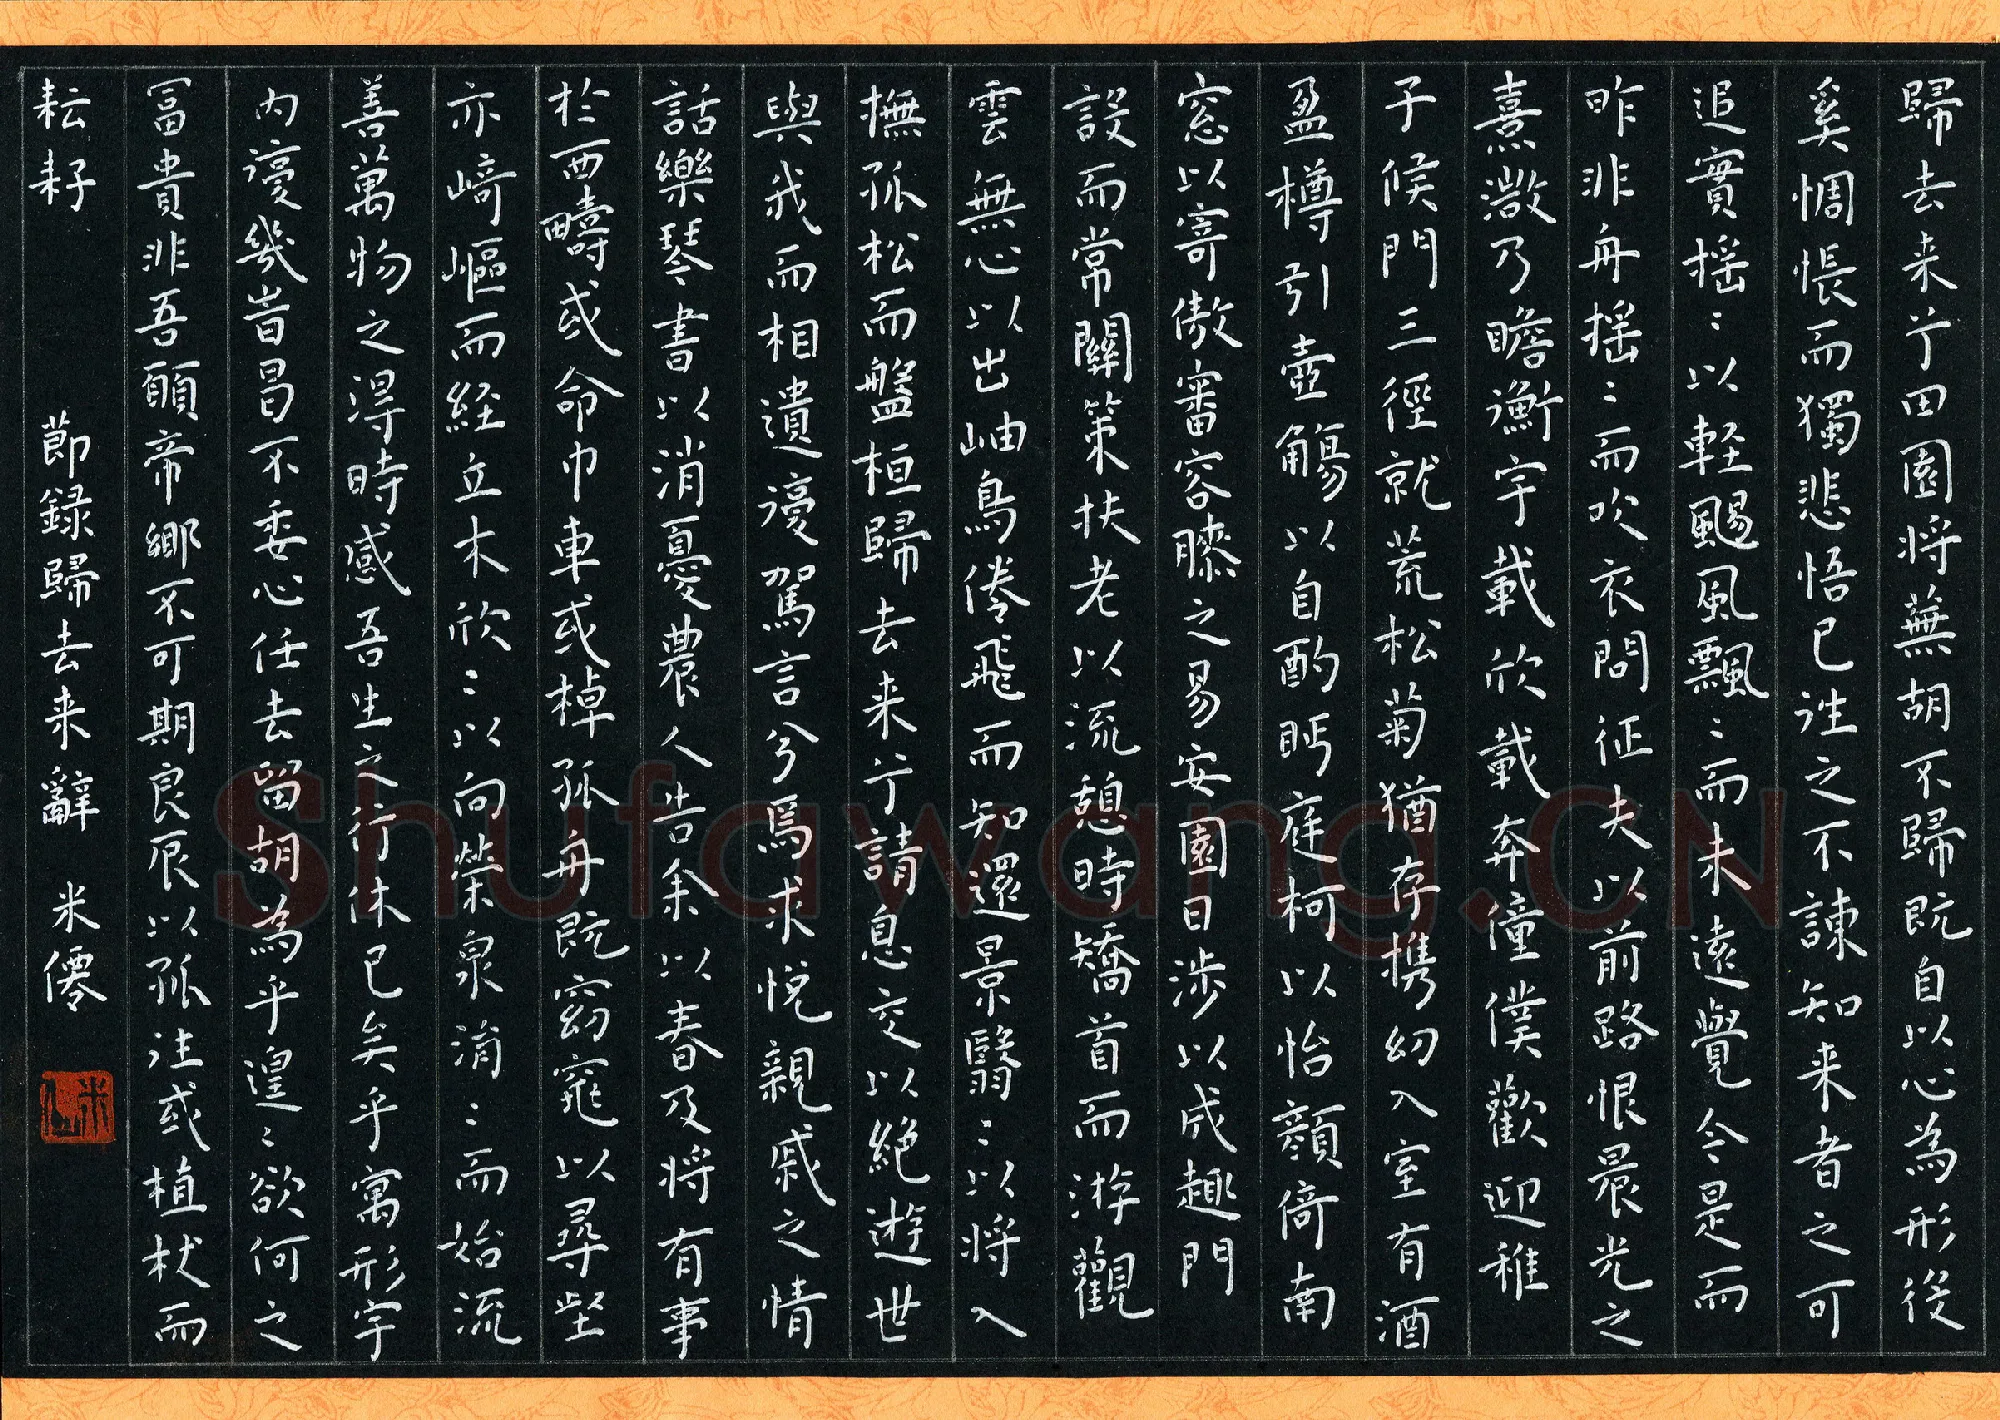 歸去来兮田園将蕪胡不歸既自以心為形役
奚惆悵而獨悲悟已往之不諫知来者之可
追實揺〻以輕颺風飄〻而未遠覺今是而
昨非舟揺〻而吹衣問征夫以前路恨晨光之
熹微乃瞻衡宇載欣載奔僮僕歡迎稚
子候門三徑就荒松菊猶存携幼入室有酒
盈樽引壺觴以自酌眄庭柯以怡顏倚南
窓以寄傲審容膝之易安園日涉以成趣門
設而常關策扶老以流憩時矯首而游觀
雲無心以出岫鳥倦飛而知還景翳〻以将入
撫孤松而盤桓歸去来兮請息交以絶遊世
與我而相遺復駕言兮焉求悅親戚之情
話樂琴書以消憂農人告余以春及将有事
於西疇或命巾車或棹孤舟既窈窕以尋壑
亦崎嶇而経丘木欣〻以向榮泉涓〻而始流
善萬物之得時感吾生之行休已矣乎寓形宇
内復幾旹曷不委心任去留胡為乎遑〻欲何之
冨貴非吾願帝鄉不可期良辰以孤往或植杖而
耘耔
節録歸去来辭 米僊
米仙
Shufawang.CN